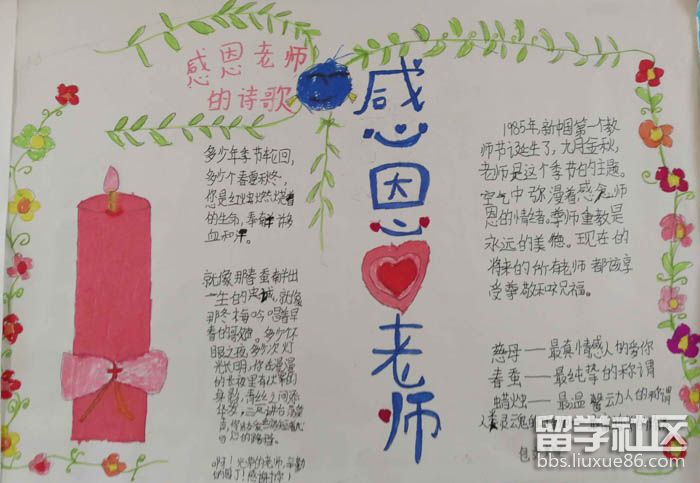 感恩老师
的诗歌
感恩老师
多少年季节轮回,
多少个春夏秋冬,
您是红烛燃烧着
的生命,奉献
血和
就像那春蚕献出
一生的忠诚,就像
那冬梅吟唱着早
春的歌
眼之夜,多少次灯
光长明,你在漫漫
的长夜里有伏案的
身影,青丝之间添
华发,三尺讲台
心的
啊!
的园丁!感谢你!
1985年,新中国第一个教
师节诞生了,九月金秋,
老师是这个季节的主题。
空气中弥漫着感念师
恩的情绪。尊师重教是
永远的美德。现在的
将来的所有老师都该享
受尊敬和祝福。
慈母——最真情感人的
春蚕——最纯挚的称谓
蜡烛——最温馨动人的称谓
人类灵魂的
留学社区
bbs.liuxue86.com